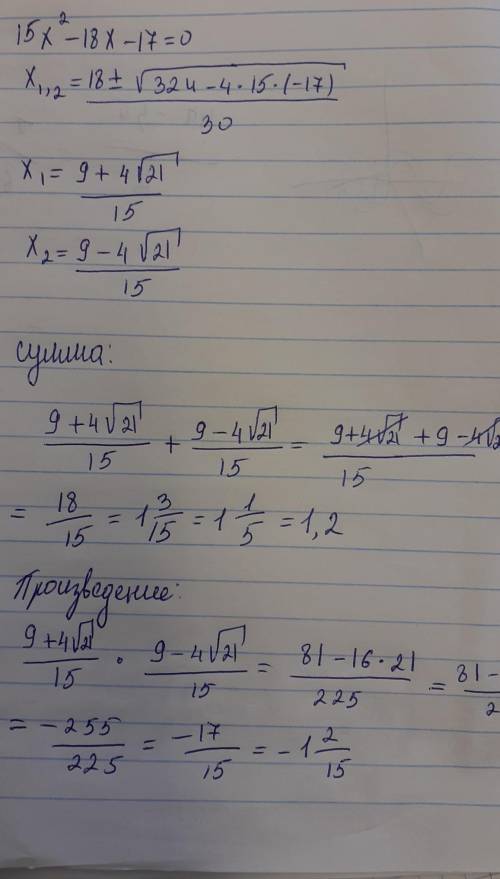 15x² - 18x - 17 = 0
x₁,₂ = (18 ± √(324 - 4 · 15 · (-17))) / 30
x₁ = (9 + 4√21) / 15
x₂ = (9 - 4√21) / 15
Сумма:
(9 + 4√21) / 15 + (9 - 4√21) / 15 = (9 + 4√21 + 9 - 4√2) / 15
= 18/15 = 1 3/15 = 1 1/5 = 1,2
Произведение:
(9 + 4√21) / 15 · (9 - 4√21) / 15 = (81 - 16 · 21) / 225 = (81 -) / 2
= -255/225 = -17/15 = -1 2/15